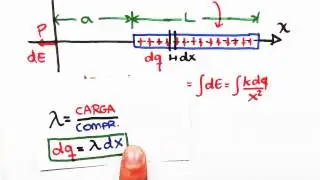 a L x
P
dE dq dx
= ∫dE = ∫ kdq / x²
λ = CARGA / COMPR.
dq = λ dx